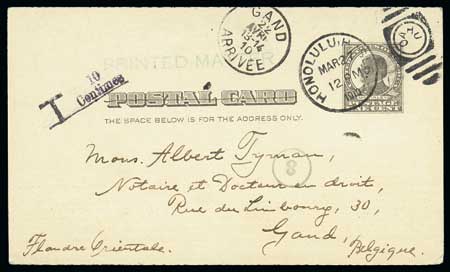 GAND
22
AVRI
13-14
10
ARRIVÉE
HONOLULU, H
MAR 2
12 M
1910
OAHU
PRINTED MATTER
T
10
Centimes
POSTAL CARD
THE SPACE BELOW IS FOR THE ADDRESS ONLY.
Mons. Albert Tyman,
3
Notaire et Docteur en droit,
Rue du Limbourg, 30,
Gand,
Flandre Orientale.
Belgique.